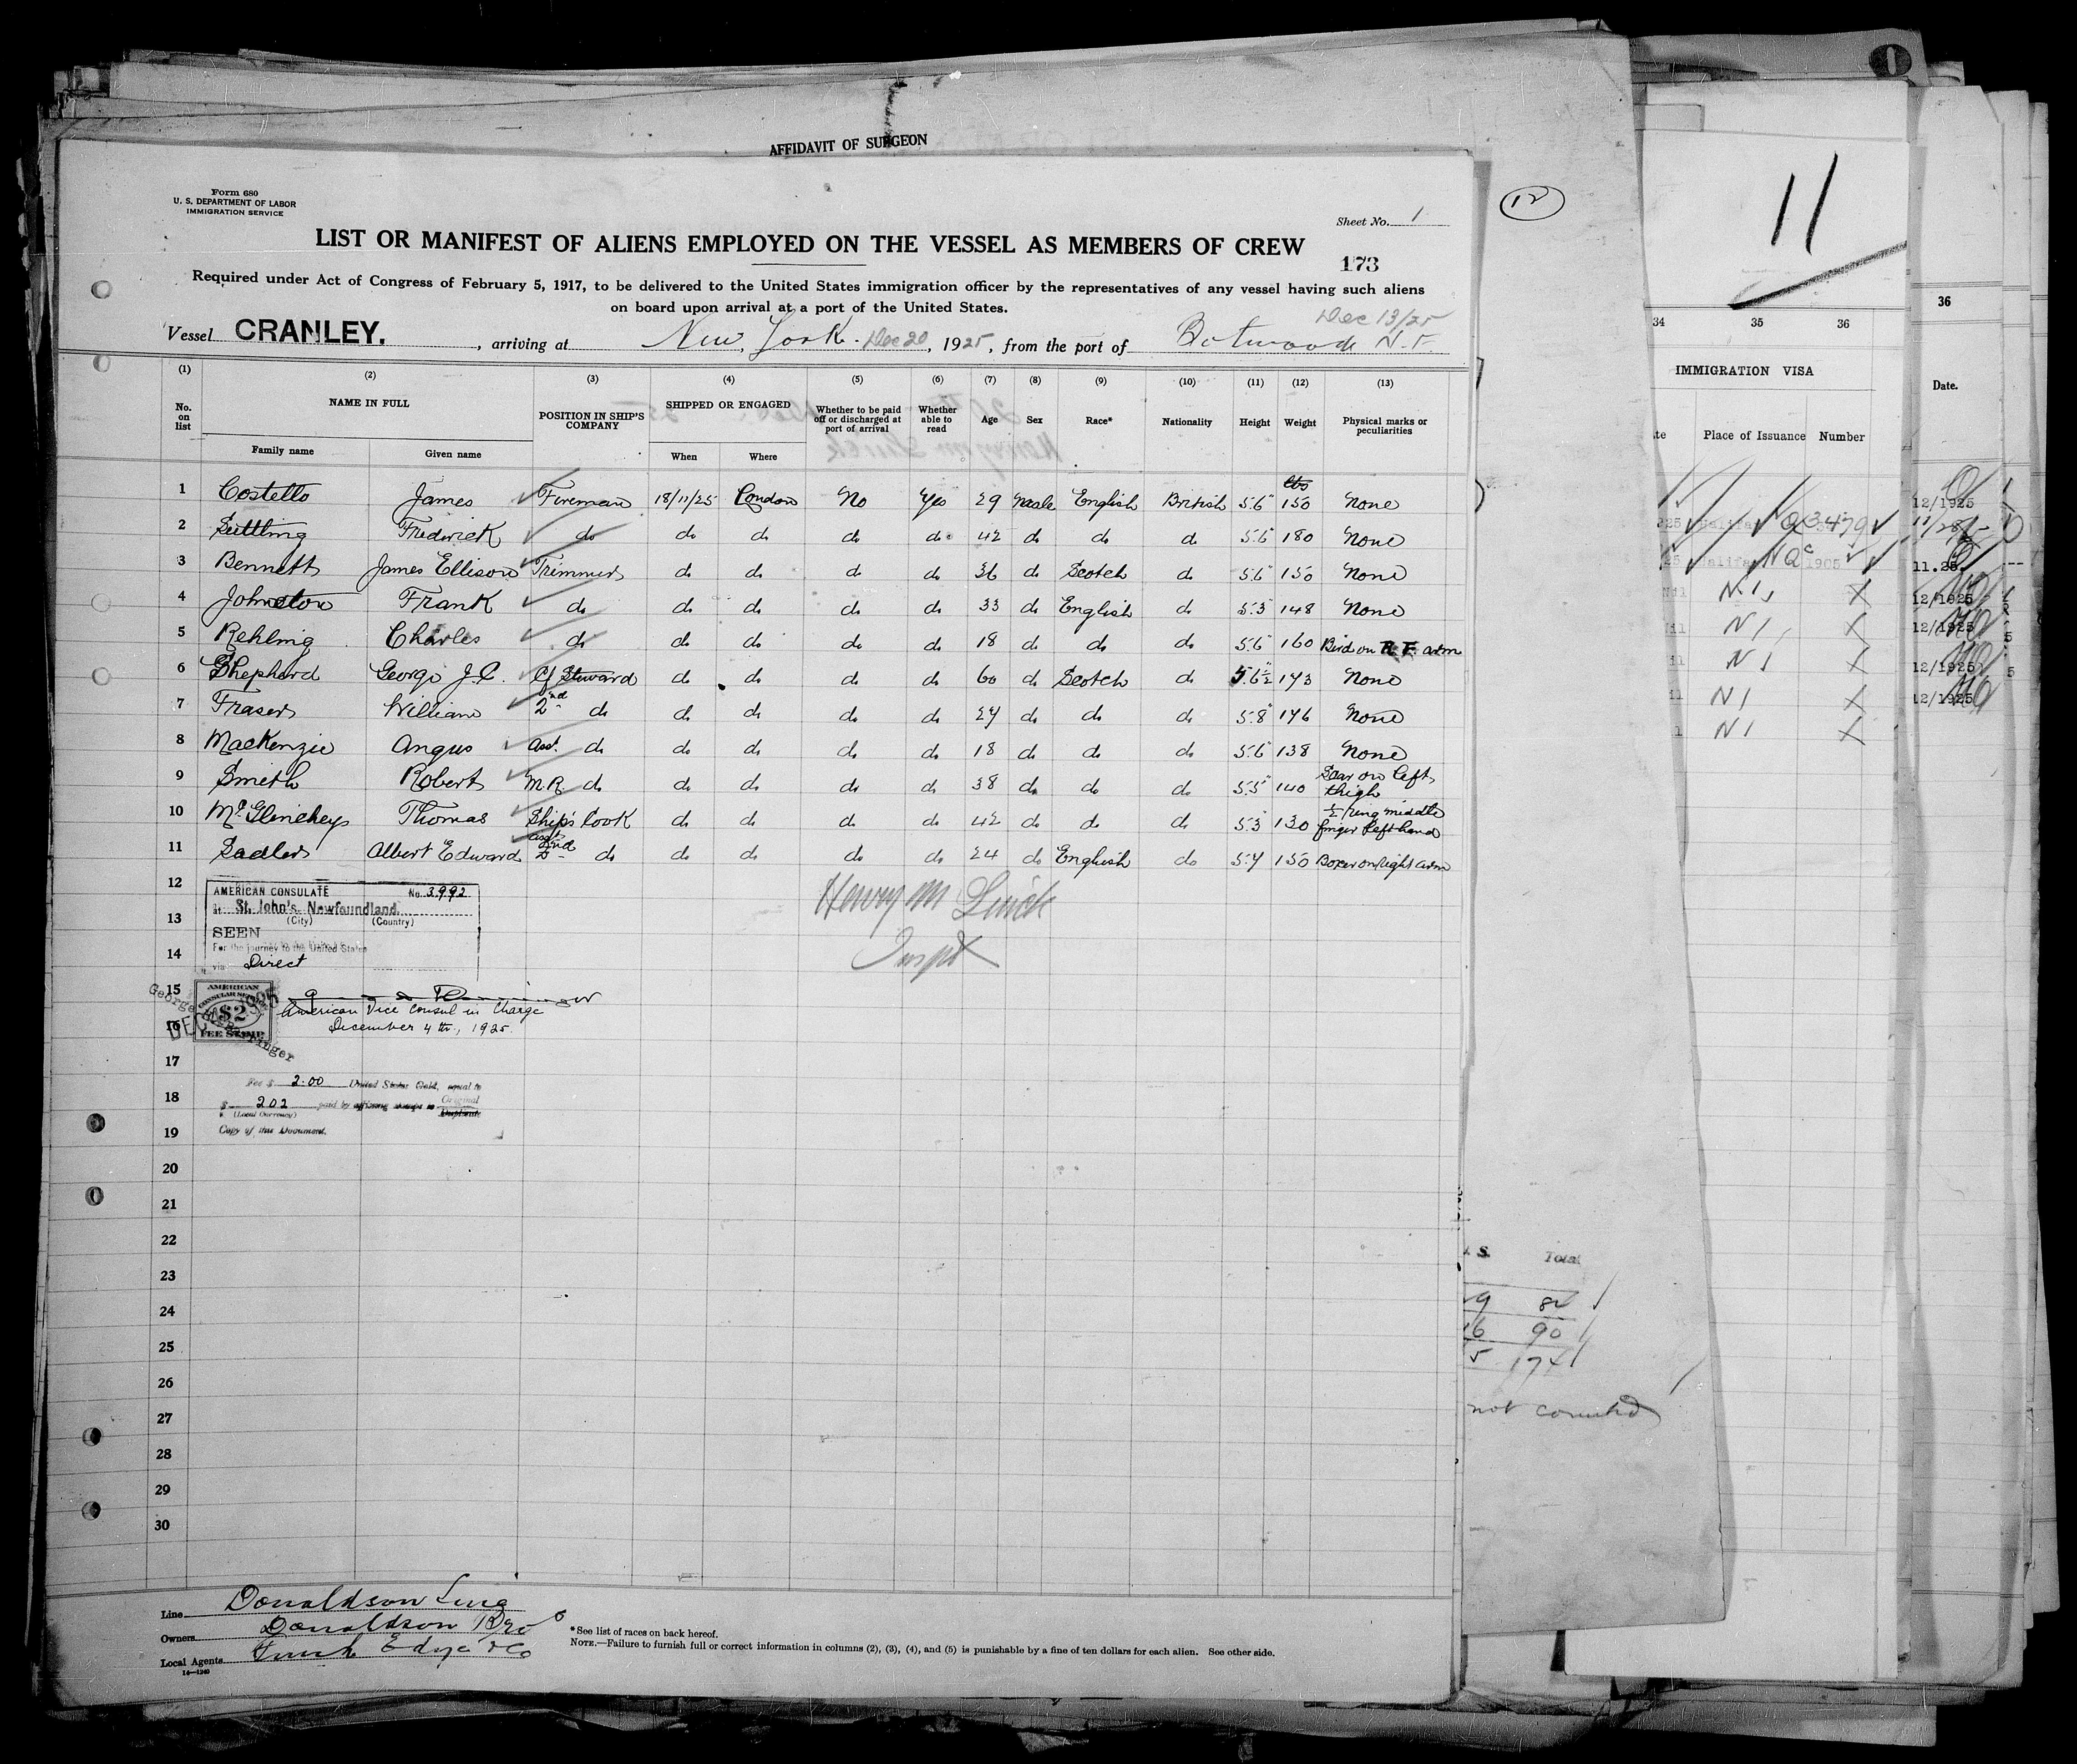 AFFIDAVIT OF SURGEON
Form 680
U. S. DEPARTMENT OF LABOR
IMMIGRATION SERVICE
Sheet No. 1
LIST OR MANIFEST OF ALIENS EMPLOYED ON THE VESSEL AS MEMBERS OF CREW
173
Required under Act of Congress of February 5, 1917, to be delivered to the United States immigration officer by the representatives of any vessel having such aliens
on board upon arrival at a port of the United States.
Dec 13/25
Vessel CRANLEY. , arriving at New York. Dec 20, 1925, from the port of Botwood N.F.
(1) (2) (3) (4) (5) (6) (7) (8) (9) (10) (11) (12) (13)
No. on list NAME IN FULL POSITION IN SHIP'S COMPANY SHIPPED OR ENGAGED Whether to be paid off or discharged at port of arrival Whether able to read Age Sex Race* Nationality Height Weight Physical marks or peculiarities
Family name Given name When Where
lbs
1 Costello James Fireman 18/11/25 London No Yes 29 Male English British 5.6" 150 None
2 Suttling Frederick do do do do do 42 do do do 5.6" 180 None
3 Bennett James Ellison Trimmer do do do do 36 do Scotch do 5.6" 150 None
4 Johnston Frank do do do do do 33 do English do 5.3" 148 None
5 Rehling Charles do do do do do 18 do do do 5.6" 160 Bird on R. F. arm
6 Shephard George J.C. Cf Steward do do do do 60 do Scotch do 5.6½" 143 None
7 Fraser William 2nd do do do do do 24 do do do 5.8" 146 None
8 MacKenzie Angus Asst. do do do do do 18 do do do 5.6" 138 None
9 Smith Robert M.R. do do do do do 38 do do do 5.5" 140 Scar on left thigh
10 McGlinchey Thomas Ship's Cook do do do do 42 do do do 5.3" 130 ½ ring middle finger left hand
11 Sadler Albert Edward asst 2nd do do do do do 24 do English do 5.4 150 Boxer on right arm
12
13
14
15
16
17
18
19
20
21
22
23
24
25
26
27
28
29
30
AMERICAN CONSULATE No. 3992
at St. John's, Newfoundland.
(City) (Country)
SEEN
For the journey to the United States
via Direct
AMERICAN
CONSULAR SERVICE
$2
FEE STAMP
American Vice Consul in Charge
December 4th, 1925.
Henry M
Inspt
Fee $ 2.00 United States Gold, equal to
$ 202 paid by affixing stamps to Original
(Local Currency) Duplicate
Copy of this Document.
Line Donaldson Line
Owners Donaldson Bros
Local Agents Funch Edye & Co
14—1240
*See list of races on back hereof.
NOTE.—Failure to furnish full or correct information in columns (2), (3), (4), and (5) is punishable by a fine of ten dollars for each alien. See other side.
12
S. Total
9 84
6 90
5 174
not counted
11
34 35 36
IMMIGRATION VISA
Place of Issuance Number
NI X
NI X
NI X
NI X
NI X
36
Date.
12/1925
11.25
12/1925
12/1925
12/1925
12/1925